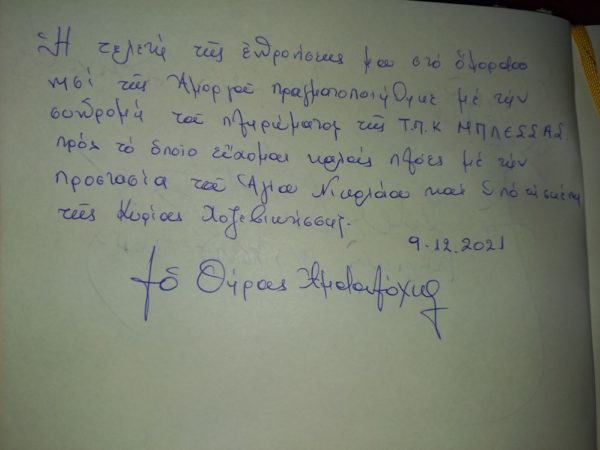 Ἡ τελετή τῆς ἐνθρονίσεως μου στό ὄμορφο
νησί τῆς Ἀμοργοῦ πραγματοποιήθηκε μέ τήν
συνδρομή τοῦ πληρώματος τῆς Τ.Π.Κ ΜΠΛΕΣΣΑΣ
πρός τό ὁποῖο εὔχομαι καλούς πλόες μέ τήν
προστασία τοῦ Ἁγίου Νικολάου καί ὑπό τή σκέπη
τῆς Κυρίας Χοζεβιωτίσσης.
9.12.2021
† ὁ Θήρας Ἀμφιλόχιος